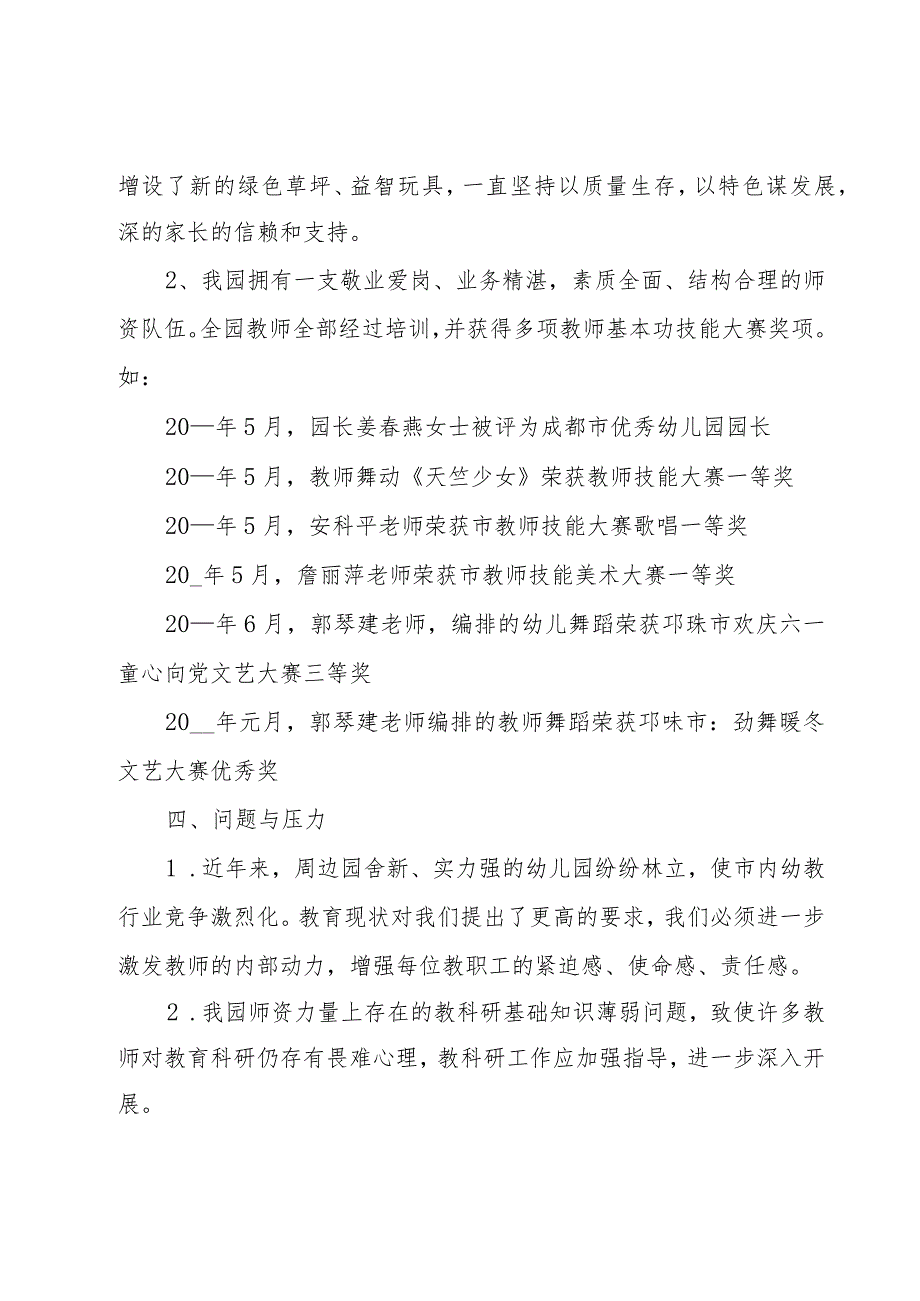 增设了新的绿色草坪、益智玩具，一直坚持以质量生存，以特色谋发展，
深的家长的信赖和支持。
2、我园拥有一支敬业爱岗、业务精湛，素质全面、结构合理的师
资队伍。全园教师全部经过培训，并获得多项教师基本功技能大赛奖项。
如：
20—年5月，园长姜春燕女士被评为成都市优秀幼儿园园长
20—年5月，教师舞动《天竺少女》荣获教师技能大赛一等奖
20—年5月，安科平老师荣获市教师技能大赛歌唱一等奖
20_年5月，詹丽萍老师荣获市教师技能美术大赛一等奖
20—年6月，郭琴建老师，编排的幼儿舞蹈荣获邛珠市欢庆六一
童心向党文艺大赛三等奖
20__年元月，郭琴建老师编排的教师舞蹈荣获邛味市：劲舞暖冬
文艺大赛优秀奖
四、问题与压力
1.近年来，周边园舍新、实力强的幼儿园纷纷林立，使市内幼教
行业竞争激烈化。教育现状对我们提出了更高的要求，我们必须进一步
激发教师的内部动力，增强每位教职工的紧迫感、使命感、责任感。
2.我园师资力量上存在的教科研基础知识薄弱问题，致使许多教
师对教育科研仍存有畏难心理，教科研工作应加强指导，进一步深入开
展。